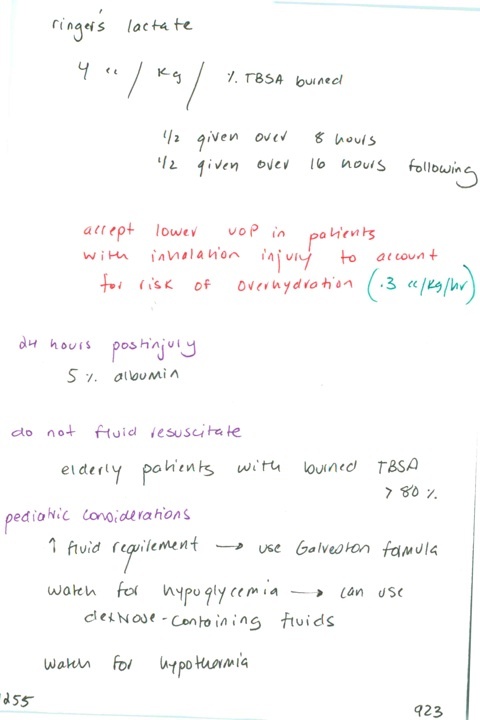 ringer's lactate
4 cc / kg / % TBSA burned
1/2 given over 8 hours
1/2 given over 16 hours following
accept lower UOP in patients
with inhalation injury to account
for risk of overhydration (.3 cc/kg/hr)
24 hours postinjury
5 % albumin
do not fluid resuscitate
elderly patients with burned TBSA
> 80 %
pediatric considerations
↑ fluid requirement → use Galveston formula
watch for hypoglycemia → can use
dextrose-containing fluids
watch for hypothermia
1255
923